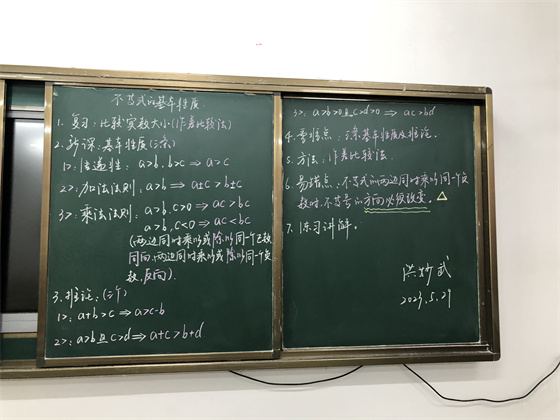 不等式的基本性质
1. 复习:比较实数大小(作差比较法)
2. 新课:基本性质(三条)
1>:传递性:a>b,b>c ⇒ a>c
2>:加法法则:a>b ⇒ a±c>b±c
3>:乘法法则:a>b,c>0 ⇒ ac>bc
a>b,c<0 ⇒ ac<bc
(两边同时乘以或除以同一个正数
同向,两边同时乘以或除以同一个负
数,反向).
3.推论:(三个)
1>:a+b>c ⇒ a>c-b
2>:a>b且c>d ⇒ a+c>b+d
3>:a>b>0且c>d>0 ⇒ ac>bd
4. 重难点:三条基本性质及推论.
5. 方法:作差比较法.
6. 易错点:不等式的两边同时乘以同一个负
数时,不等号的方向必须改变.
7. 练习讲解.
洪妙武
2023.5.29